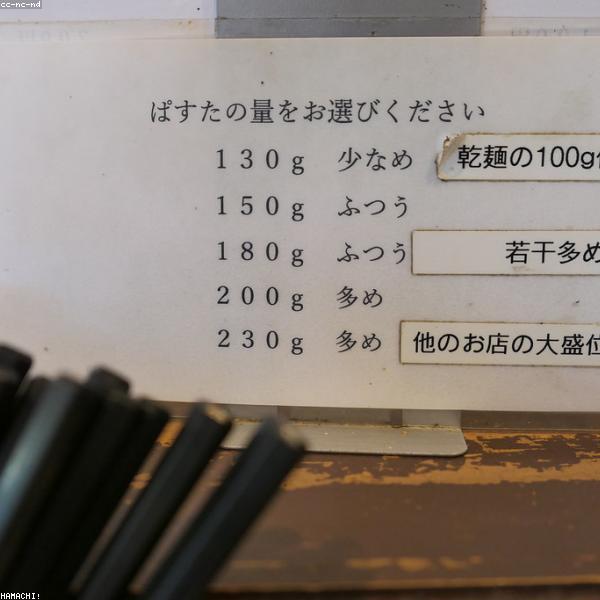 cc-nc-nd
ぱすたの量をお選びください
130g 少なめ 乾麺の100g
150g ふつう
180g ふつう 若干多め
200g 多め
230g 多め 他のお店の大盛位
HAMACHI!